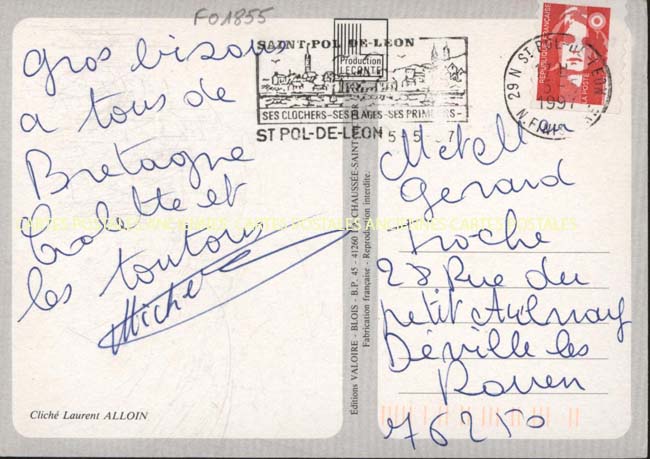 F01855
Gros bisous
a tous de
Bretagne
et
les toutous
Michel
Cliché Laurent ALLOIN
SAINT-POL-DE-LEON
Production
LECONTE
SES CLOCHERS-SES PLAGES-SES PRIMEURS-
ST POL-DE-LEON
29 N ST POL-DE-LEON
1997
N. FINISTERE
RÉPUBLIQUE FRANÇAISE
LA POSTE
Editions VALOIRE - BLOIS - B.P. 45 - 41260 LA CHAUSSÉE-SAINT-VICTOR
Fabrication française - Reproduction interdite.
CARTES POSTALES ANCIENNES CARTES POSTALES
Gerard
28 Rue du
petit Aulnay
Déville les
Rouen
76250